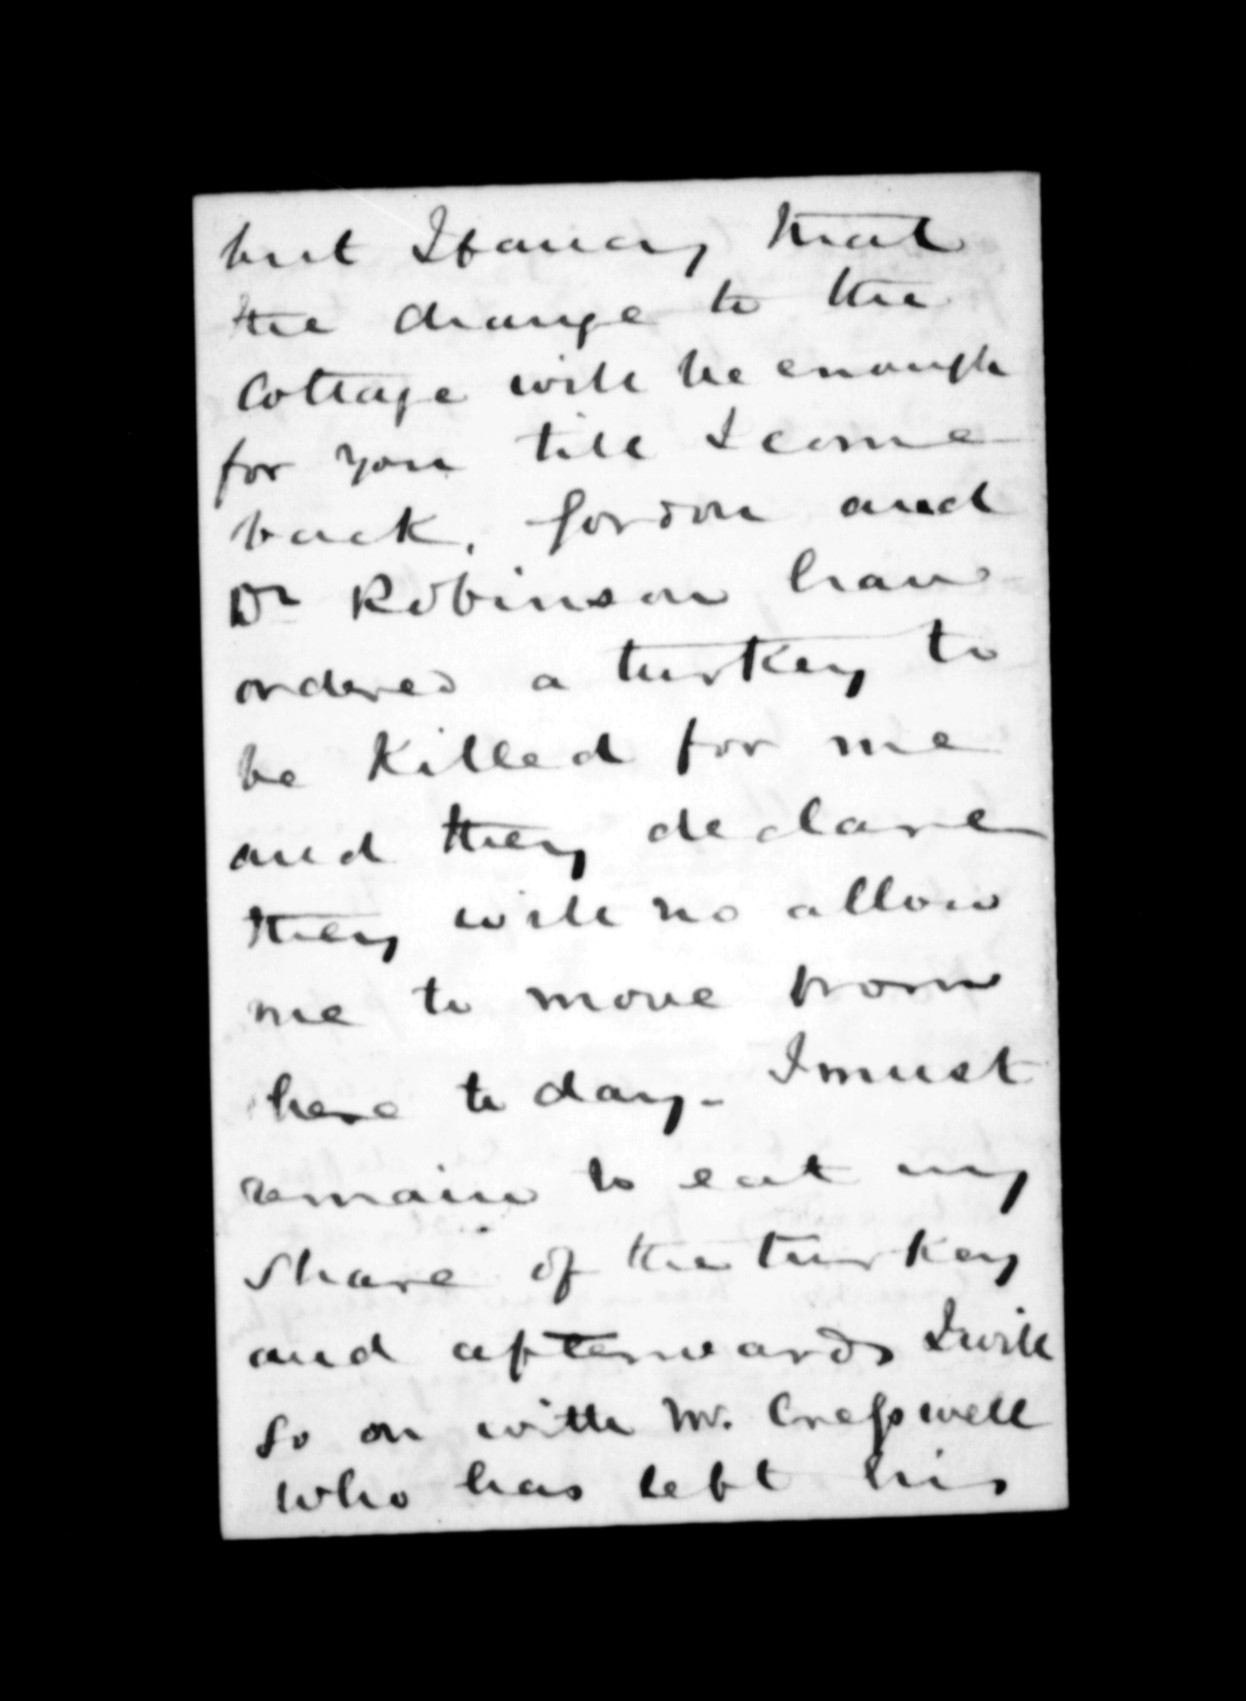 but I fancy that
the change to the
Cottage will be enough
for you till I come
back. Gordon and
Dr Robinson have
ordered a turkey to
be killed for me
and they declare
they will no allow
me to move from
here to day. I must
remain to eat my
share of the turkey
and afterwards I will
go on with Mr. Cresswell
who has left his